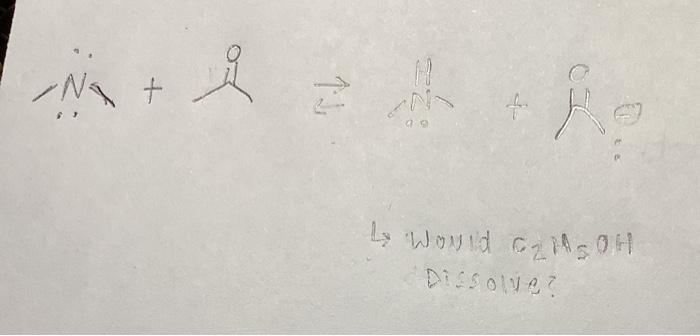 N + O ⇌ H N + O ⊖
↳ Would C2H5OH
Dissolve?